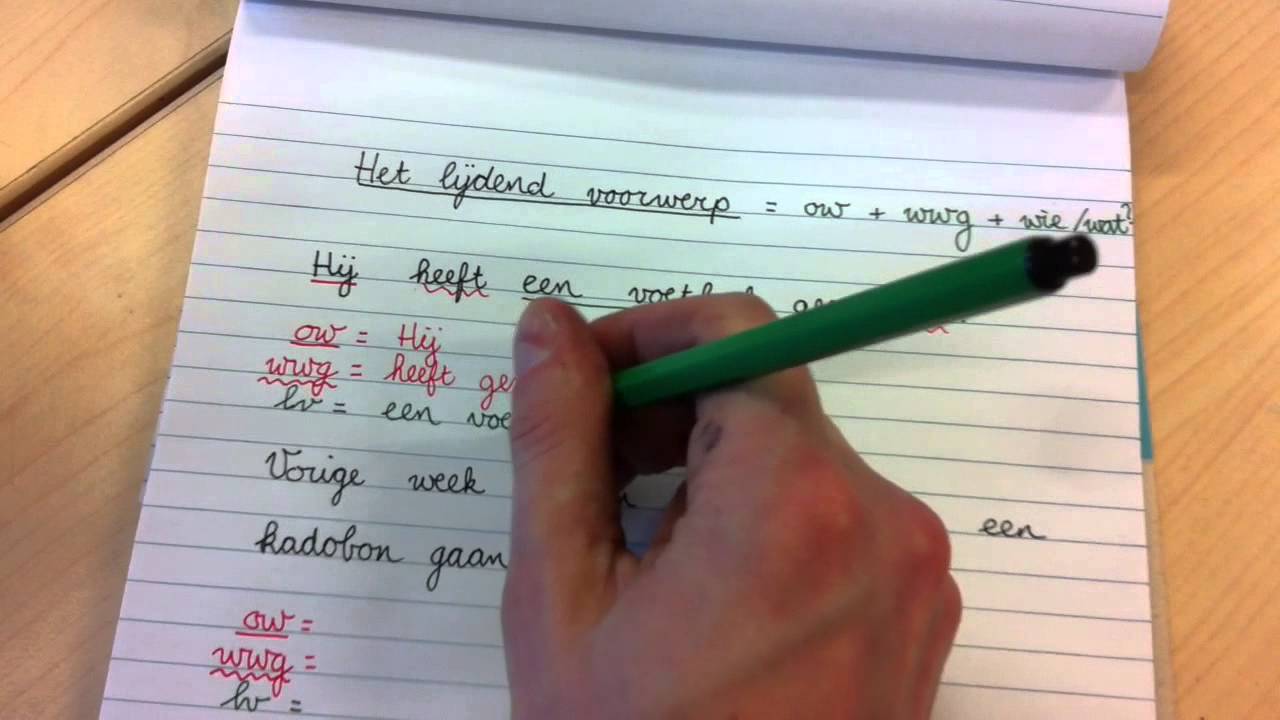 Het lijdend voorwerp = ow + wwg + wie/wat?
Hij heeft een
ow = Hij
wwg = heeft
lv = een
Vorige week
een
kadobon gaan
ow =
wwg =
lv =